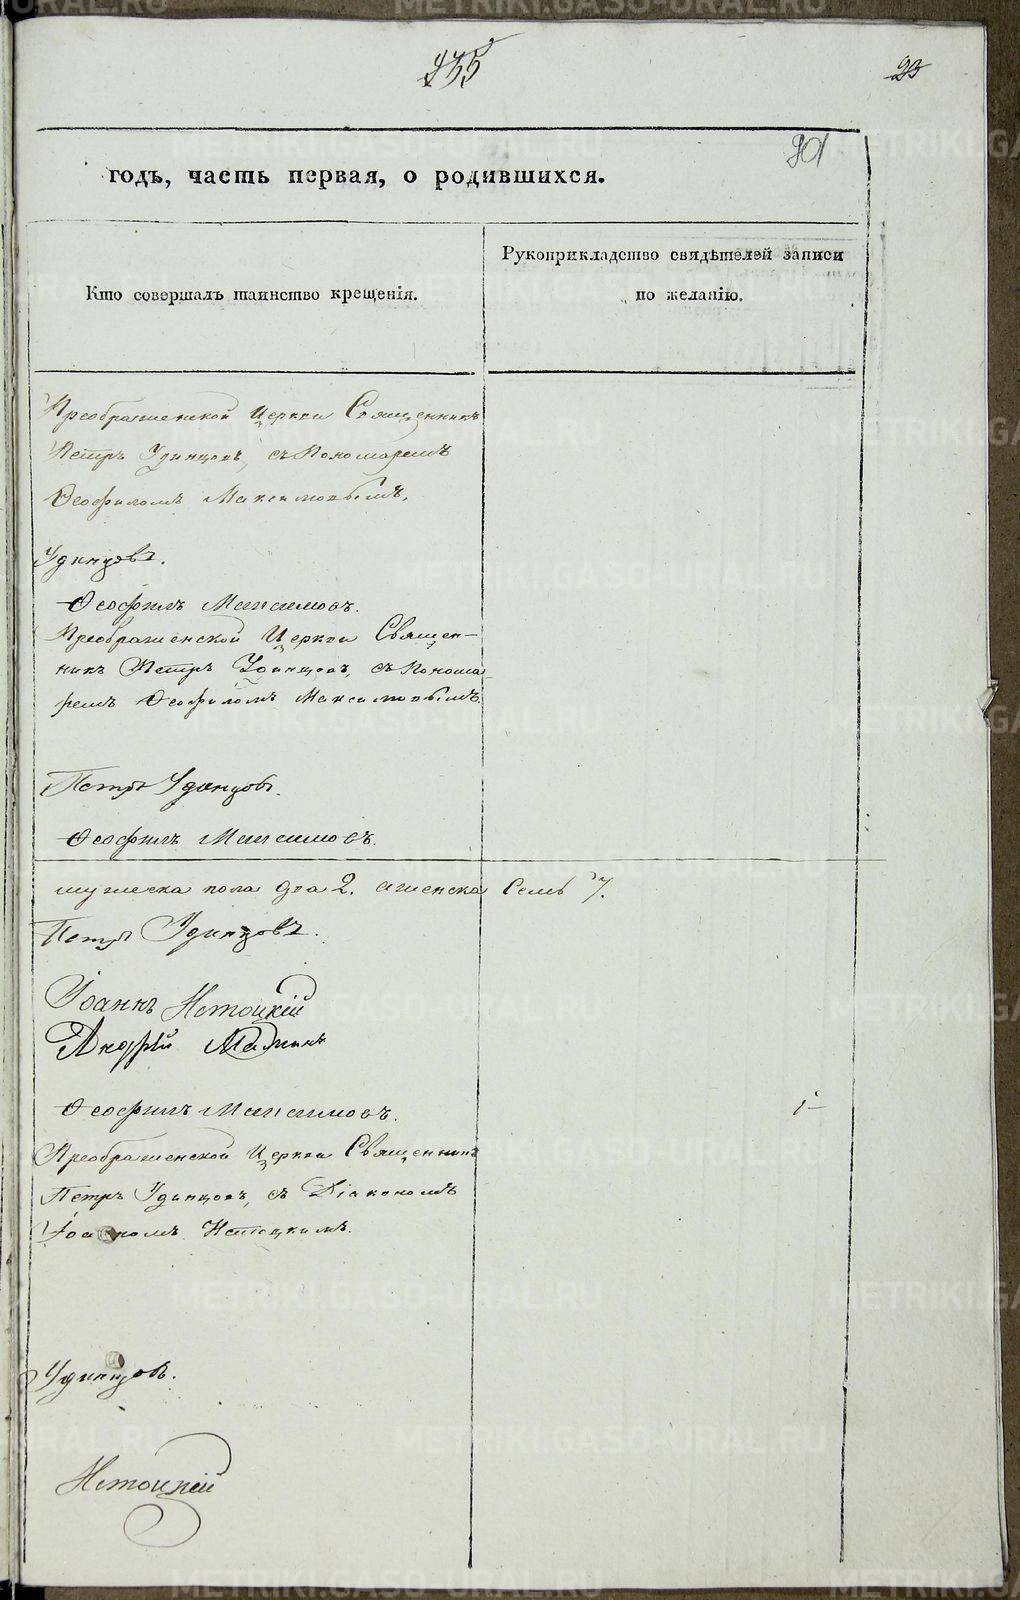 235
23
201
годъ, часть первая, о родившихся.
Кто совершалъ таинство крещенія.
Рукоприкладство свидѣтелей записи
по желанію.
Преображенской Церкви Священникъ
Петръ Удинцовъ, съ Пономаремъ
Ѳеофиломъ Максимовымъ.
Удинцовъ.
Ѳеофилъ Максимовъ.
Преображенской Церкви Священ-
никъ Петръ Удинцовъ, съ Понома-
ремъ Ѳеофиломъ Максимовымъ.
Петръ Удинцовъ.
Ѳеофилъ Максимовъ.
мужеска пола два 2. а женска семь 7.
Петръ Удинцовъ.
Іоаннъ
Андрей
Ѳеофилъ Максимовъ.
Преображенской Церкви Священникъ
Петръ Удинцовъ, съ Діакономъ
Удинцовъ.
METRIKI.GASO-URAL.RU